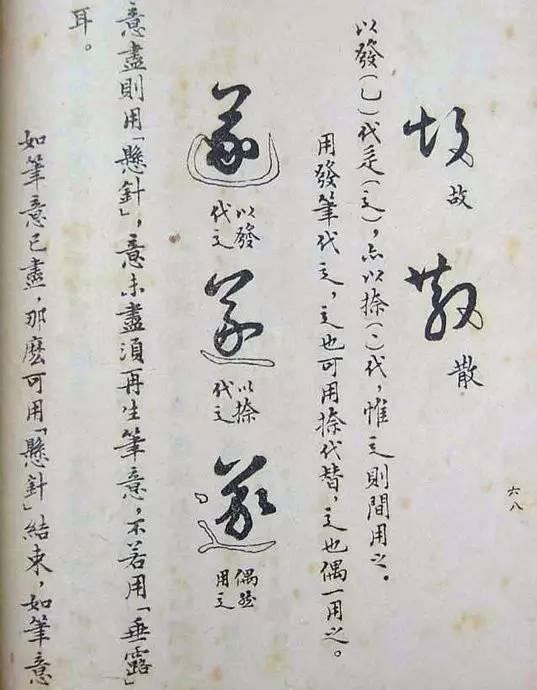 六八
故 故 散 散
以發(乙)代辵(辶),亦以捺(㇏)代,惟辶則間用之。
用發筆代辶,辶也可用捺代替,辶也偶一用之。
遂 以發代辶
遂 以捺代辶
遂 偶然用辶
意盡則用「懸針」,意未盡須再生筆意,不若用「垂露」
耳。
如筆意已盡,那麽可用「懸針」結束,如筆意